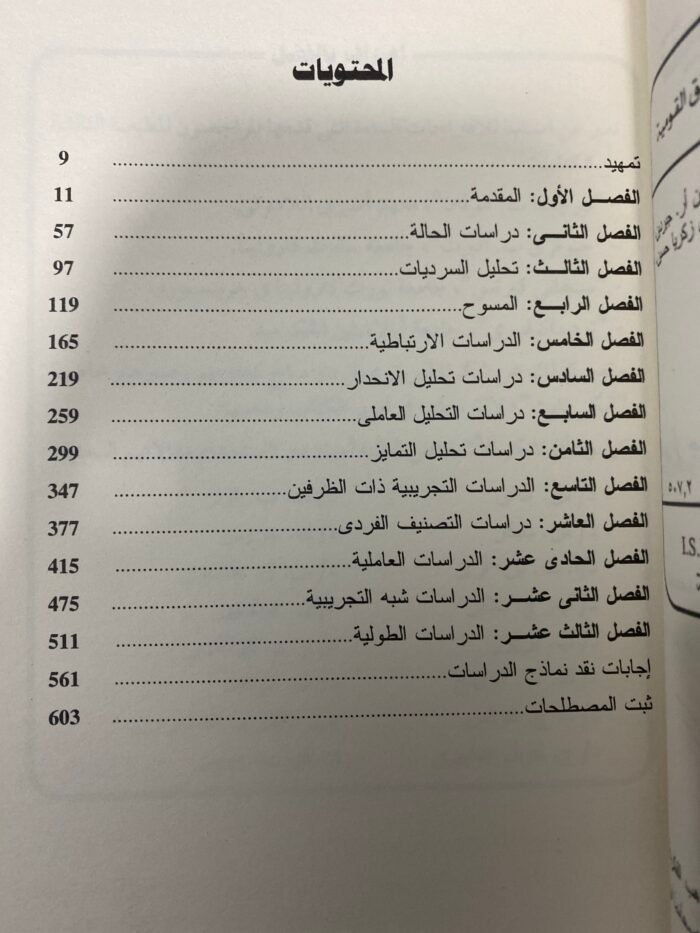 المحتويات
تمهيد 9
الفصل الأول: المقدمة 11
الفصل الثانى: دراسات الحالة 57
الفصل الثالث: تحليل السرديات 97
الفصل الرابع: المسوح 119
الفصل الخامس: الدراسات الارتباطية 165
الفصل السادس: دراسات تحليل الانحدار 219
الفصل السابع: دراسات التحليل العاملى 259
الفصل الثامن: دراسات تحليل التمايز 299
الفصل التاسع: الدراسات التجريبية ذات الظرفين 347
الفصل العاشر: دراسات التصنيف الفردى 377
الفصل الحادى عشر: الدراسات العاملية 415
الفصل الثانى عشر: الدراسات شبه التجريبية 475
الفصل الثالث عشر: الدراسات الطولية 511
إجابات نقد نماذج الدراسات 561
ثبت المصطلحات 603
القومية
زكريا
٥٠٧,٢
I.S.